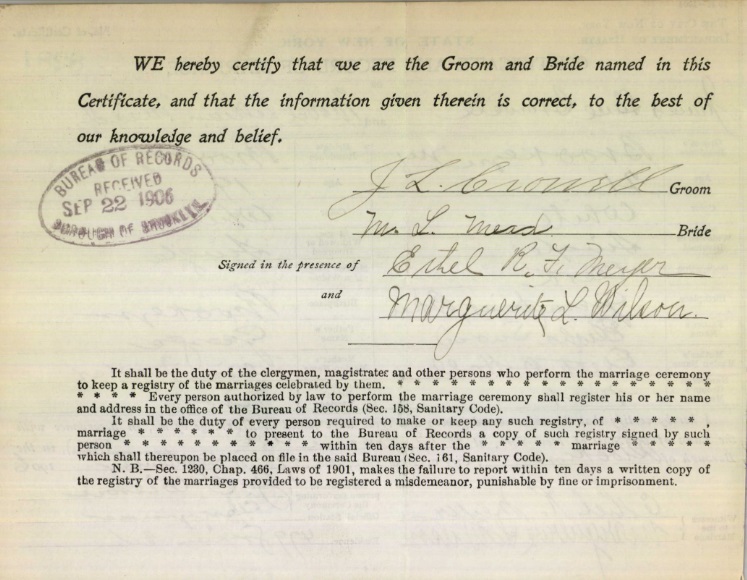 WE hereby certify that we are the Groom and Bride named in this
Certificate, and that the information given therein is correct, to the best of
our knowledge and belief.
BUREAU OF RECORDS
RECEIVED
SEP 22 1906
BOROUGH OF BROOKLYN
J L. Crowell Groom
M. L. Bride
Signed in the presence of Ethel R. F. Meyer
and
Marguerite L. Wilson.
It shall be the duty of the clergymen, magistrates and other persons who perform the marriage ceremony
to keep a registry of the marriages celebrated by them. * * * * * * * * * * * * * * * * *
* * * * Every person authorized by law to perform the marriage ceremony shall register his or her name
and address in the office of the Bureau of Records (Sec. 158, Sanitary Code).
It shall be the duty of every person required to make or keep any such registry, of * * * * * ,
marriage * * * * * * to present to the Bureau of Records a copy of such registry signed by such
person * * * * * * * * * * * within ten days after the * * * * * marriage * * * * *
which shall thereupon be placed on file in the said Bureau (Sec. 161, Sanitary Code).
N. B.—Sec. 1230, Chap. 466, Laws of 1901, makes the failure to report within ten days a written copy of
the registry of the marriages provided to be registered a misdemeanor, punishable by fine or imprisonment.